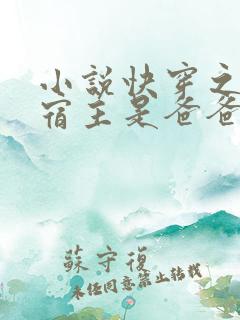 小說快穿之
宿主是爸爸
蘇守復
未经同意禁止转载